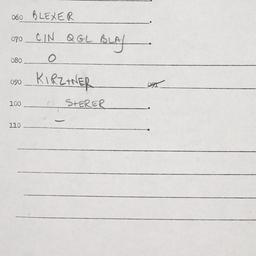 060 BLEXER
070 CIN QGL BLAJ
080 O
090 KIRZTNER
100 STERER
110 –